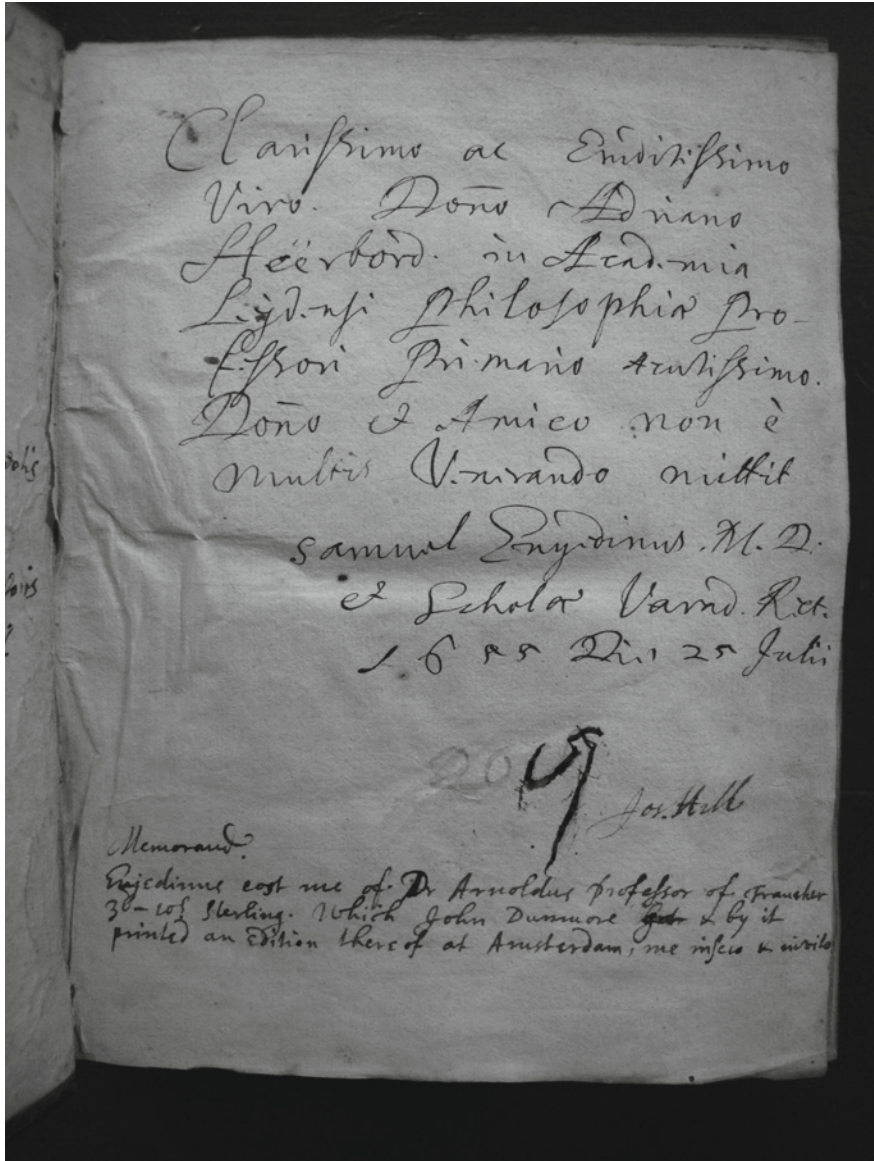 Clarissimo ac Eruditissimo
Viro. Dono Adriano
Heërbord. in Academia
Leydensi Philosophiæ Pro-
fessori Primario Acutissimo.
Dono et Amico non è
multis Venerando mittit
Samuel Enyedinus. M. D.
et Scholæ Varad. Rect.
1655 Die 25 Julii
20
Jos. Hill
Memorand.
Enjedinus cost me of Dr Arnoldus professor of Franeker
Sterling. Which John Dunmore & by it
printed an Edition thereof at Amsterdam, me inscio & invito